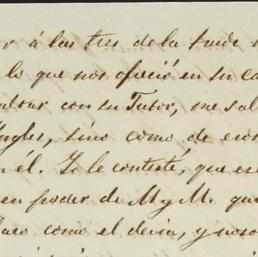 á las tres de la tarde
lo que nos ofreció en su ca
con su Tutor, me sal
Ingles, sino como de
él. Yo le contesté, que es
en poder de M y M. que
como el decia, y noso